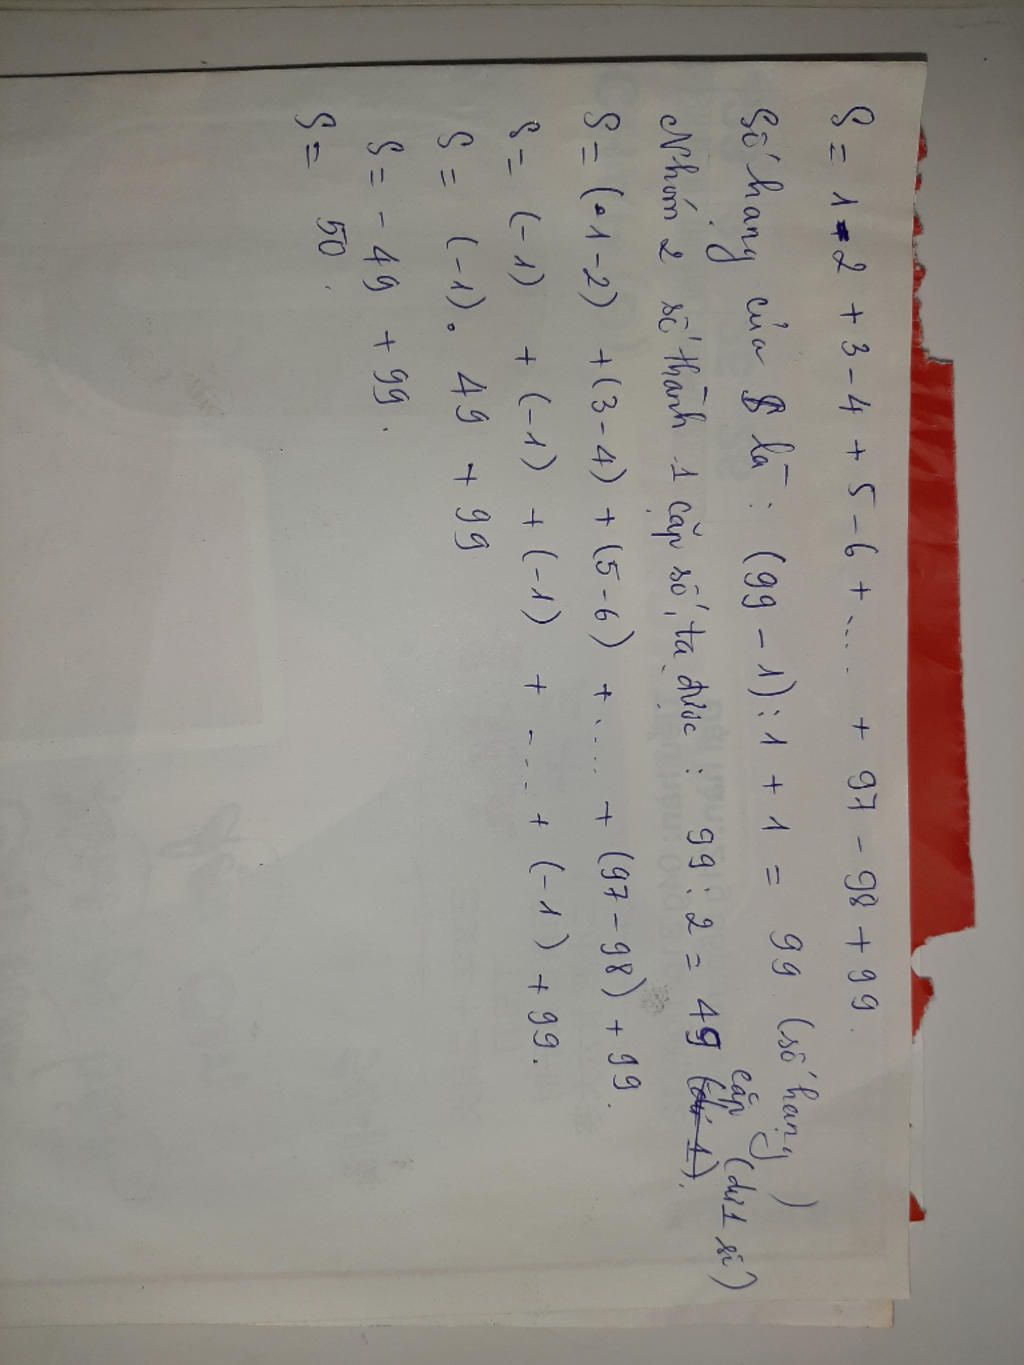 S = 1 - 2 + 3 - 4 + 5 - 6 + .... + 97 - 98 + 99.
Số hạng của S là : (99 - 1) : 1 + 1 = 99 (số hạng)
Nhóm 2 số thành 1 cặp số, ta được : 99 : 2 = 49 cặp (dư 1 số)
S = (1 - 2) + (3 - 4) + (5 - 6) + .... + (97 - 98) + 99.
S = (-1) + (-1) + (-1) + .... + (-1) + 99.
S = (-1) . 49 + 99
S = - 49 + 99.
S = 50.